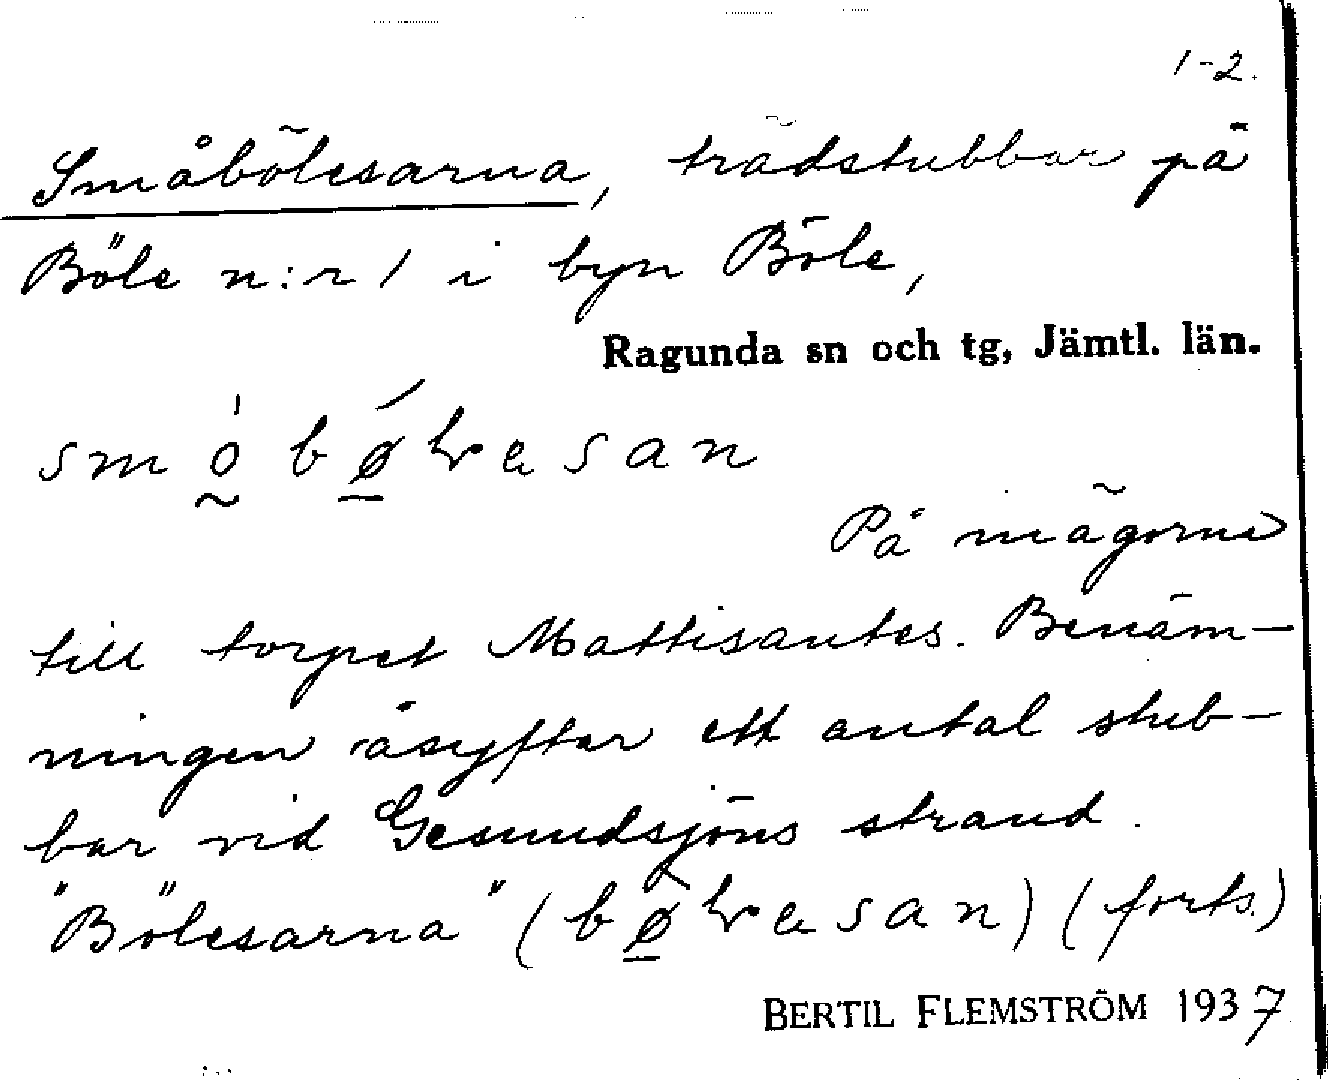 1-2.
Småbölesarna, trädstubbar på
Böle n:r 1 i byn Böle,
Ragunda sn och tg, Jämtl. län.
På mägorna
till torpet Mattisantes. Benäm-
ningen åsyftar ett antal stub-
bar vid Gesundsjöns strand.
"Bölesarna" (forts.)
BERTIL FLEMSTRÖM 1937